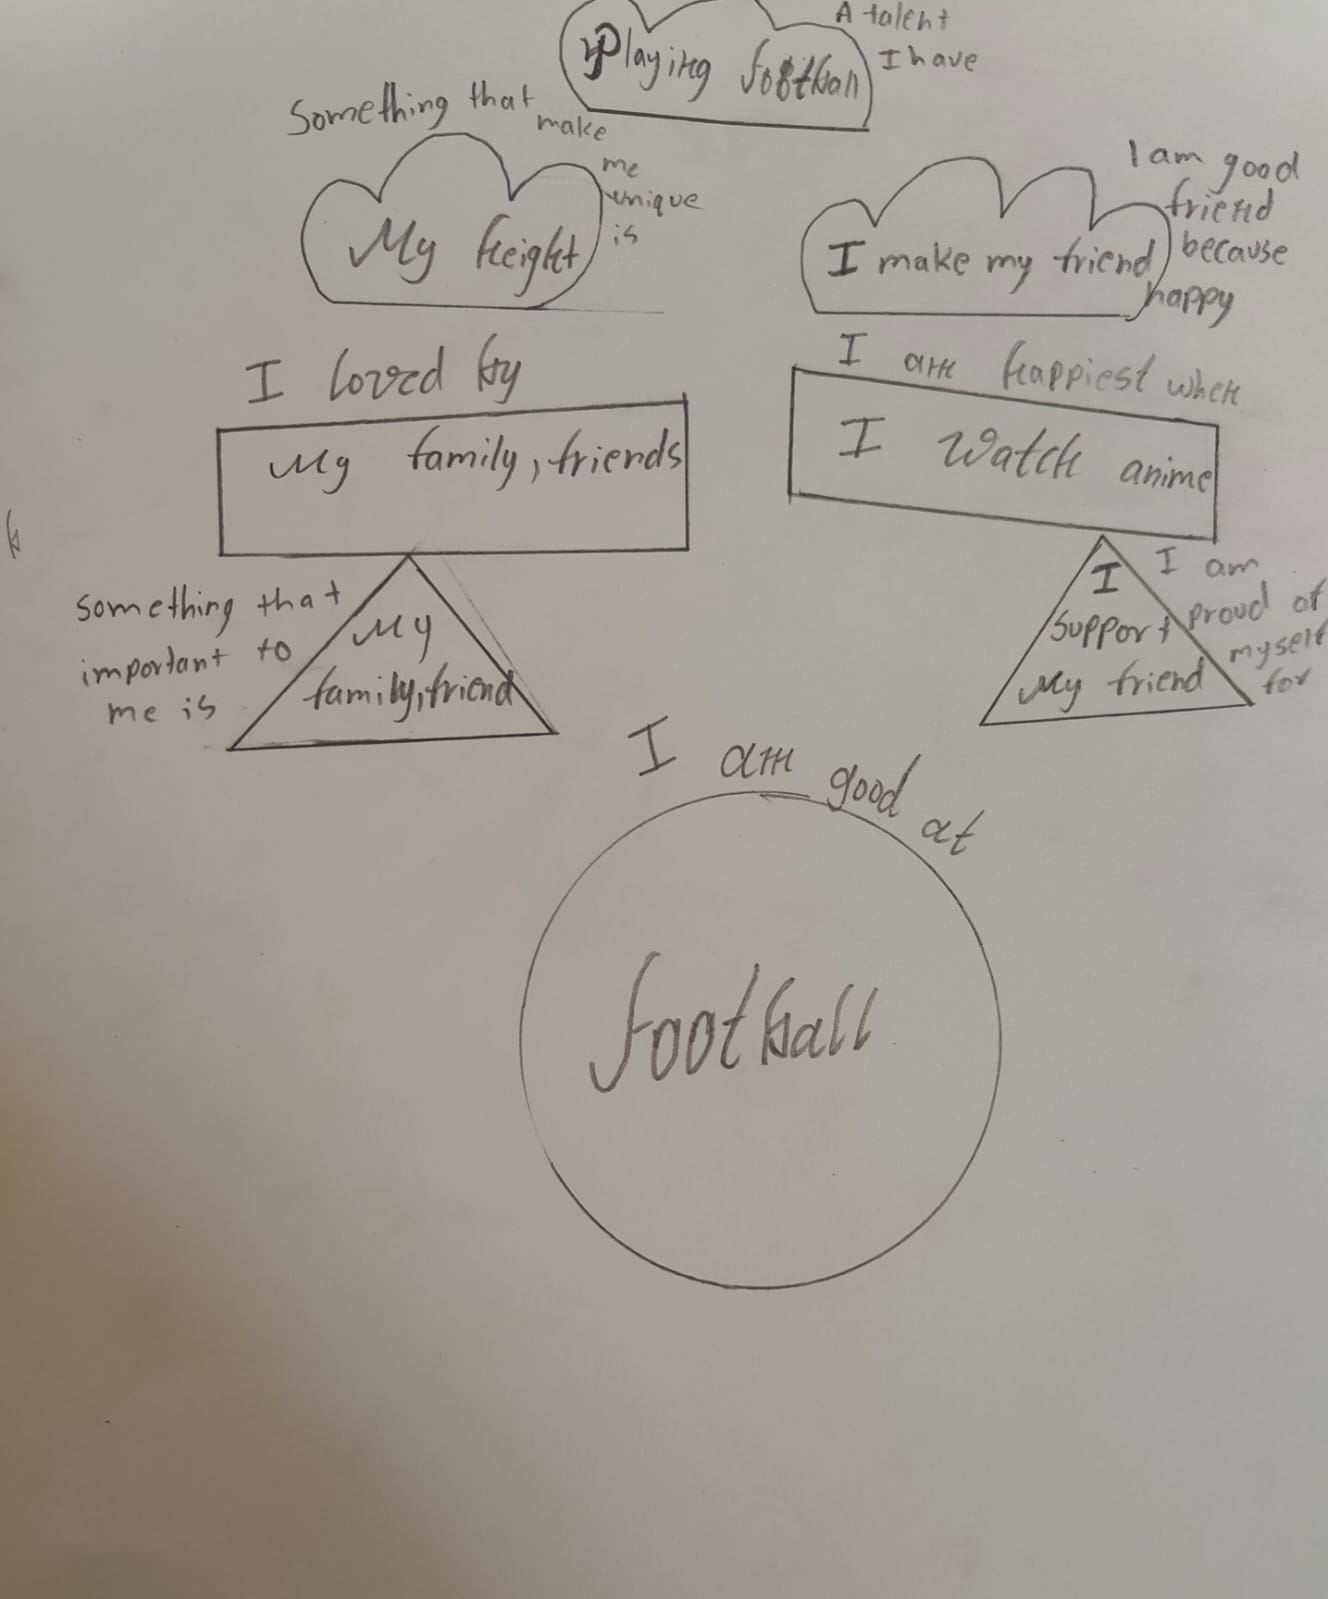 A talent
I have
Playing football
Something that
make
me
unique
is
My height
I am good
friend
because
happy
I make my friend
I loved by
My family, friends
I am happiest when
I Watch anime
Something that
important to
me is
My
family, friend
I am
proud of
myself
for
I
support
My friend
I am good at
football